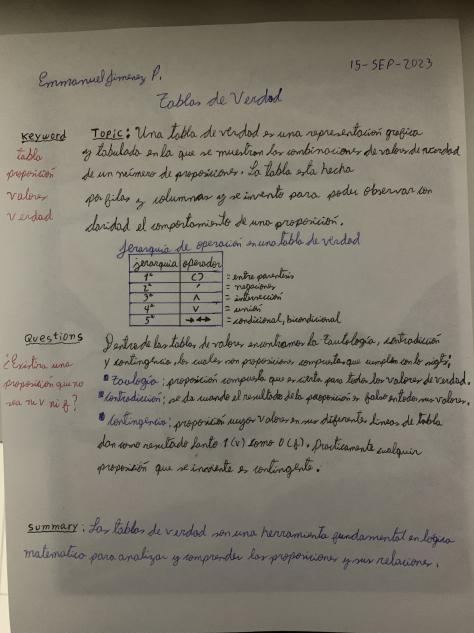 Emmanuel Jimenez P.
15-SEP-2023
Tablas de Verdad
Keyword
tabla
proposición
valores
verdad
Topic: Una tabla de verdad es una representación grafica
y tabulada en la que se muestran las combinaciones de valores de verdad
de un número de proposiciones. La tabla esta hecha
por filas y columnas y se invento para poder observar con
claridad el comportamiento de una proposición.
Jerarquia de operación en una tabla de verdad
jerarquia operador
1° ( ) = entre parentesis
2° ' = negaciones
3° ∧ = intersección
4° ∨ = unión
5° → ↔ = condicional, bicondicional
Questions
¿Existira una
proposición que no
sea ni V ni f?
Dentro de las tablas de valores encontramos la Tautología, contradicción
y contingencia, los cuales son proposiciones compuestas que cumplen con lo sigte:
* Taulogía: proposición compuesta que es cierta para todos los valores de verdad.
* Contradicción: se da cuando el resultado de la proposición es falso en todos sus valores.
* Contingencia: proposición cuyos valores en sus diferentes lineas de tabla
dan como resultado tanto 1 (v) como 0 (f). Practicamente cualquier
proposición que se invente es contingente.
Summary: Las tablas de verdad son una herramienta fundamental en lógica
matematica para analizar y comprender las proposiciones y sus relaciones.